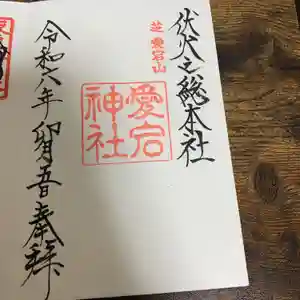 伏火之総本社
芝 愛宕山
愛宕
神社
令和六年 卯月五日 奉拝